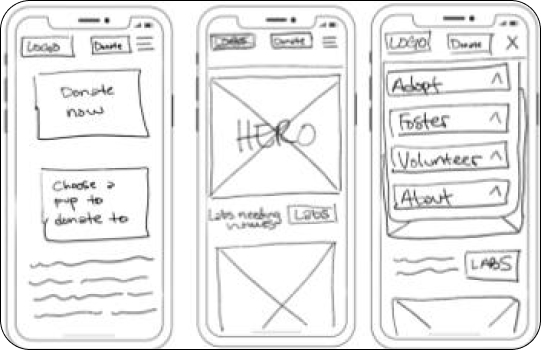 LOGO Donate
Donate
now
Choose a
pup to
donate to
Donate
HERO
Labs needing
homes
Labs
LOGO Donate X
Adopt ^
Foster ^
Volunteer ^
About ^
LABS